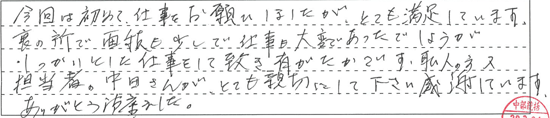 今回は初めて仕事をお願いしましたが、とても満足しています。
裏の所で面積も少しで仕事も大変であったでしょうが
しっかりとした仕事をして頂き有がたかったです。私人の方ス
担当者。中田さんが、とても親切にして下さい感謝しています。
ありがとう御座ました。